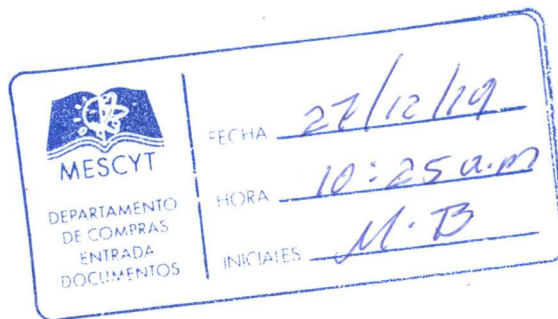 MESCYT
DEPARTAMENTO
DE COMPRAS
ENTRADA
DOCUMENTOS
FECHA 27/12/19
HORA 10:25 a.m
INICIALES M.B